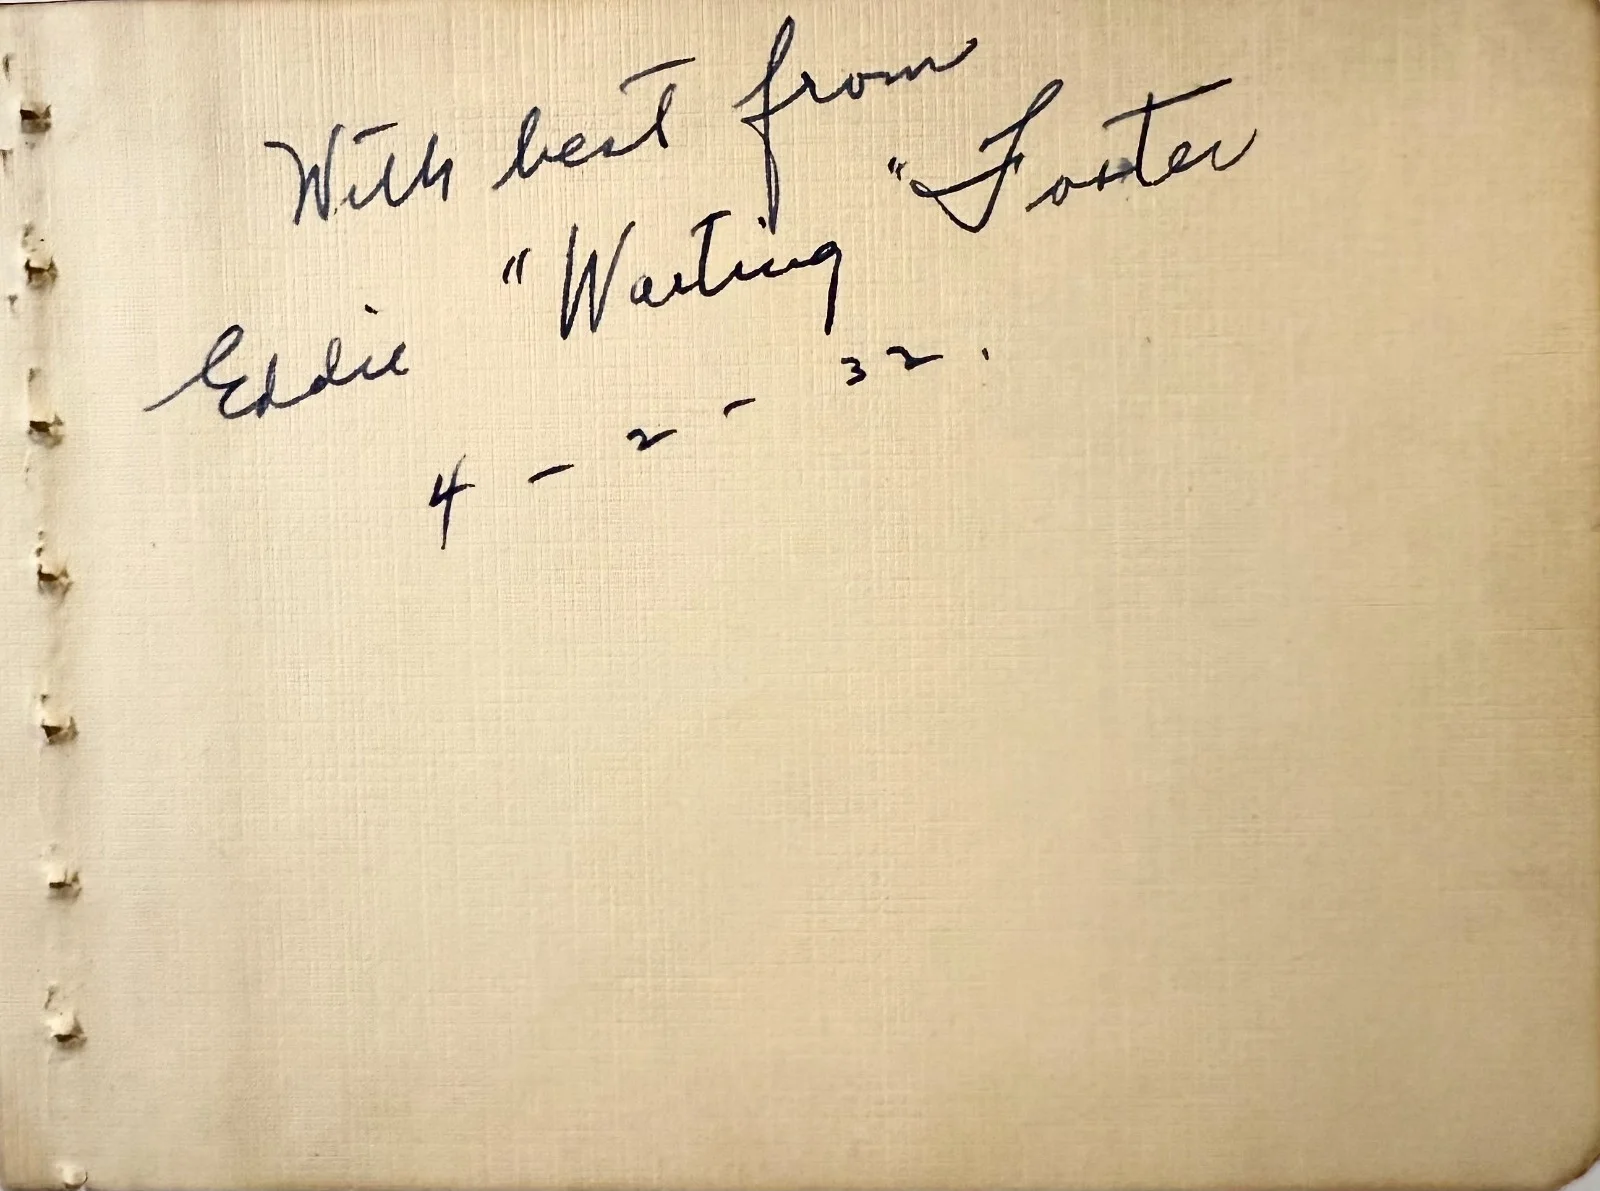 With best from
Eddie "Waiting" Foster
4 - 2 - 32.